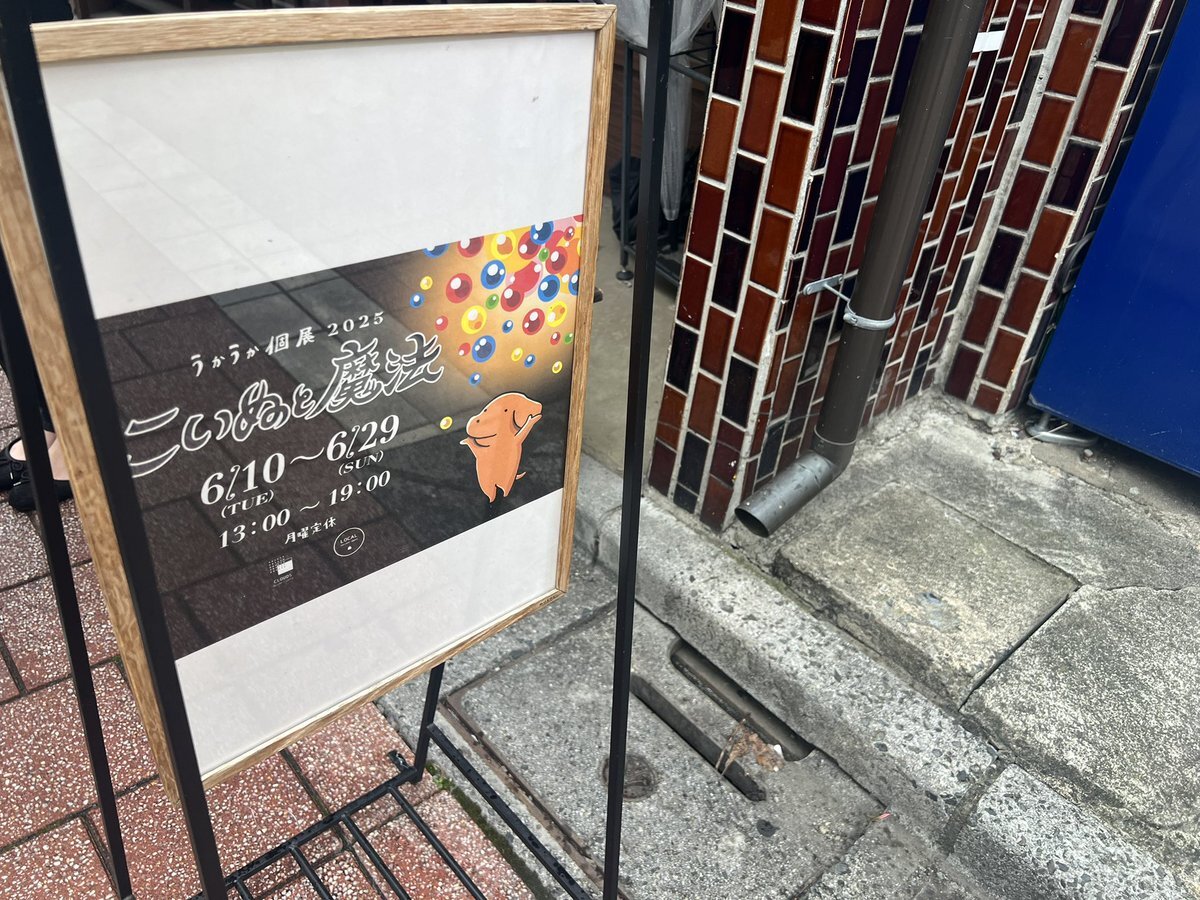 うかうか個展 2025
こいぬと魔法
6/10～6/29
(TUE) (SUN)
13:00 ～ 19:00
月曜定休
CLOUDS
LOCAL